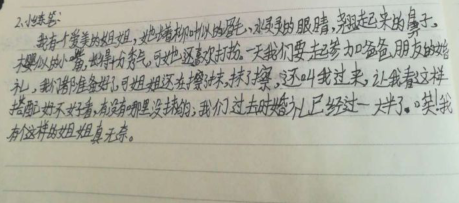 2.小练笔:
我有个爱美的姐姐,她有着柳叶似的眉毛,水灵灵的眼睛,翘起来的鼻子,
樱桃似的小嘴,她得十分秀气,可她还喜欢打扮。一天我们要去参加爸爸朋友的婚
礼,我们都准备好了,可姐姐还在擦擦抹抹,抹了擦,还叫我过来,让我看这样
搭配好不好看,有没有哪里没抹的,我们过去时婚礼已经过一大半了。哎!我
有个这样的姐姐真无奈。